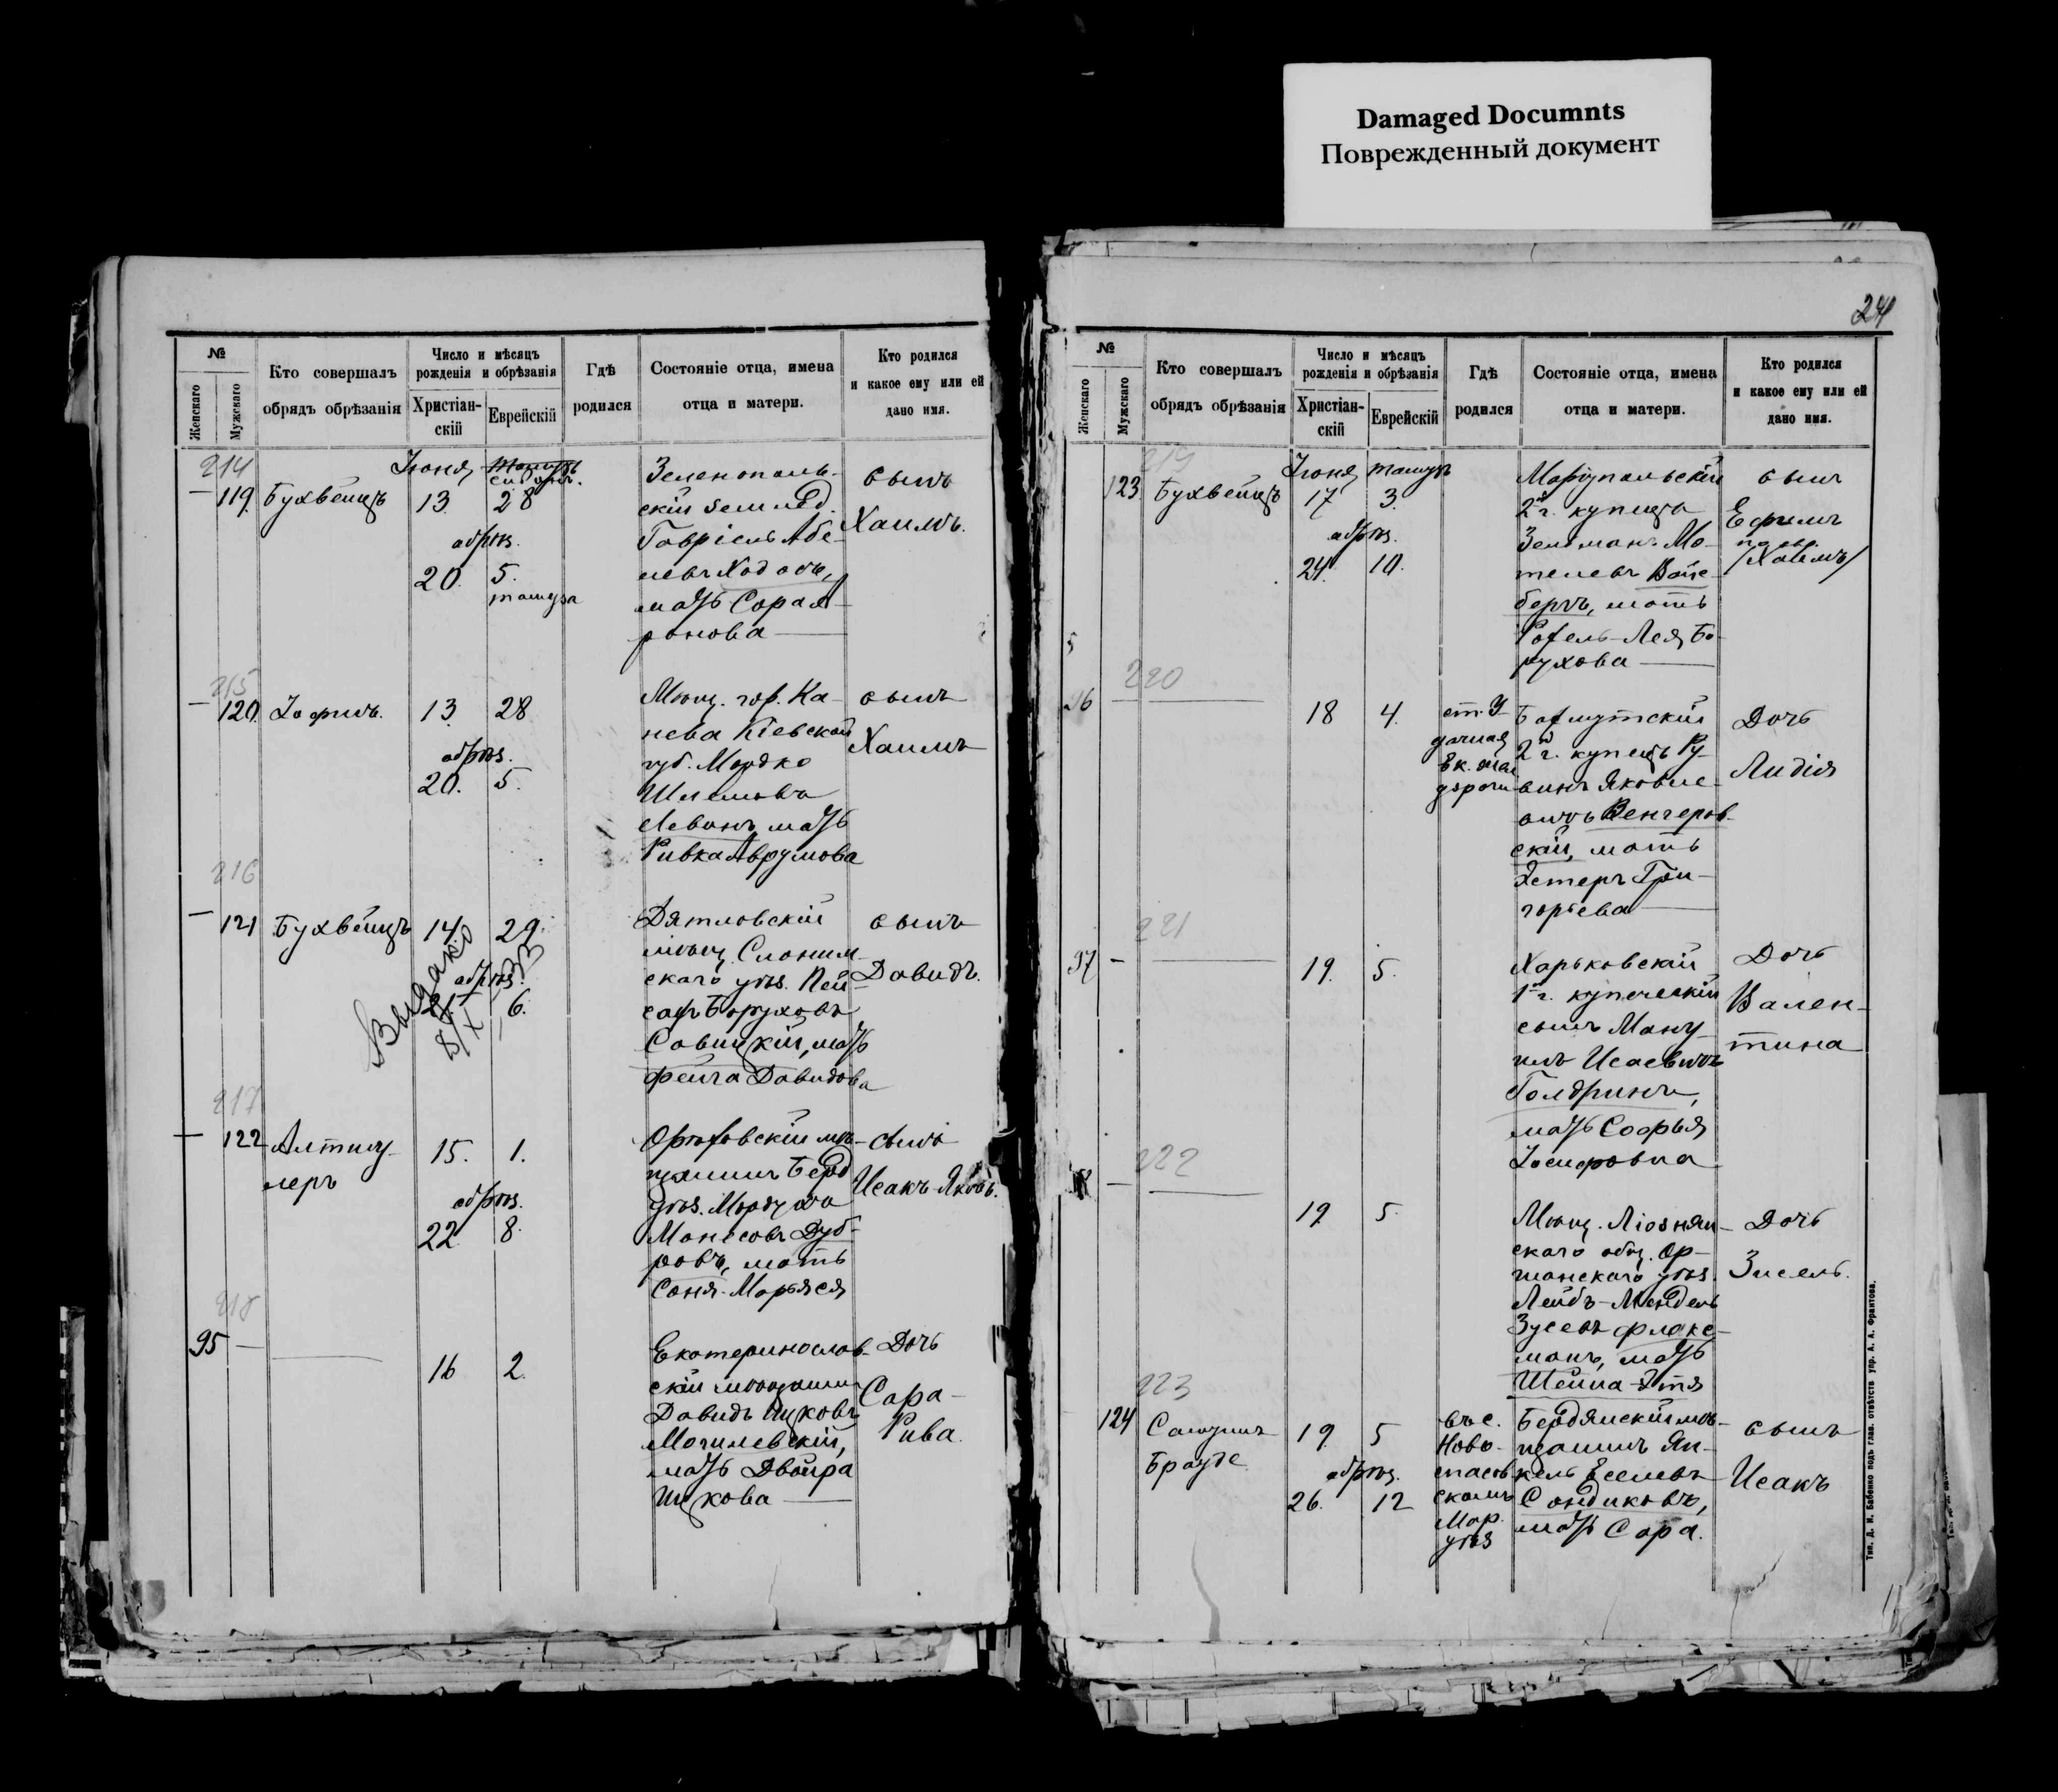 Damaged Documnts
Поврежденный документ
24
№
Женскаго
Мужскаго
Кто совершалъ
обрядъ обрѣзанія
Число и мѣсяцъ
рожденія и обрѣзанія
Христіан-
скій
Еврейскій
Гдѣ
родился
Состояніе отца, имена
отца и матери.
Кто родился
и какое ему или ей
дано имя.
214
Іюня
сивонъ.
— 119. Бухвейцъ
13. 28
обрѣз.
20. 5.
тамуза
Зеленополь-
скій землед.
Говріель Абе-
левъ Ходосъ,
мать Сора А-
ронова —
сынъ
Хаимъ.
215
— 120. Іофинъ.
13. 28
обрѣз.
20. 5.
Мѣщ. гор. Ка-
нева Кіевской
губ. Мордко
Шлемовъ
Левинъ, мать
Ривка Аврумова
сынъ
Хаимъ
216
— 121 Бухвейцъ
14. 29.
обрѣз.
6.
Выдано
Дятловскій
мѣщ. Слоним-
скаго уѣз. Пей-
сахъ Боруховъ
Совицкій, мать
Фейга Довидова
сынъ
Довидъ.
217
— 122 Алтшу-
леръ
15. 1.
обрѣз.
22 8.
Орѣховскій мѣ-
щанинъ Берд.
уѣз. Мордухъ
Монесовъ Дуб-
ровъ, мать
Соня-Марьяся
сынъ
Исакъ-Яковъ.
218
95 —
16 2.
Екатеринослов-
скій мѣщанин
Довидъ Ицковъ
Могилевскій,
мать Двойра
Ицкова —
Дочь
Сара-
Рива.
№
Женскаго
Мужскаго
Кто совершалъ
обрядъ обрѣзанія
Число и мѣсяцъ
рожденія и обрѣзанія
Христіан-
скій
Еврейскій
Гдѣ
родился
Состояніе отца, имена
отца и матери.
Кто родился
и какое ему или ей
дано имя.
219
Іюня тамузъ
123 Бухвейцъ
17 3.
обрѣз.
24. 10.
Маріупольскій
2й г. купецъ
Зельманъ Мо-
телевъ Вайс-
бергъ, мать
Рохель-Лея Бо-
рухова —
сынъ
Ефимъ
/Хаимъ/
220
96 —
18 4.
ст. У-
дачная
Ек. жел
дороги
Бахмутскій
2й г. купецъ Ру-
винъ Яковле-
вичъ Венгеров-
скій, мать
Эстеръ Гри-
горьева —
Дочь
Лидія
221
97 —
19. 5.
Харьковскій
1й г. купеческій
сынъ Ману-
илъ Исаевичъ
Голдринъ,
мать Софья
Іосифовна
Дочь
Вален-
тина
222
19 5.
Мѣщ. Ліознян-
скаго общ. Ор-
шанскаго уѣз.
Лейбъ-Мендель
Зусевъ Флакс-
манъ, мать
Шейна-Этя
Дочь
Зисель.
223
124 Самуилъ
Брауде
19. 5
обрѣз.
26. 12
въ с.
Ново-
спасов
скомъ
Мар.
уѣз
Бердянскій мѣ-
щанинъ Ян-
кель Еселевъ
Сондиковъ,
мать Сора.
сынъ
Исакъ
Тип. Д. И. Бабенко подъ глав. отвѣтств упр. А. А. Франтова.